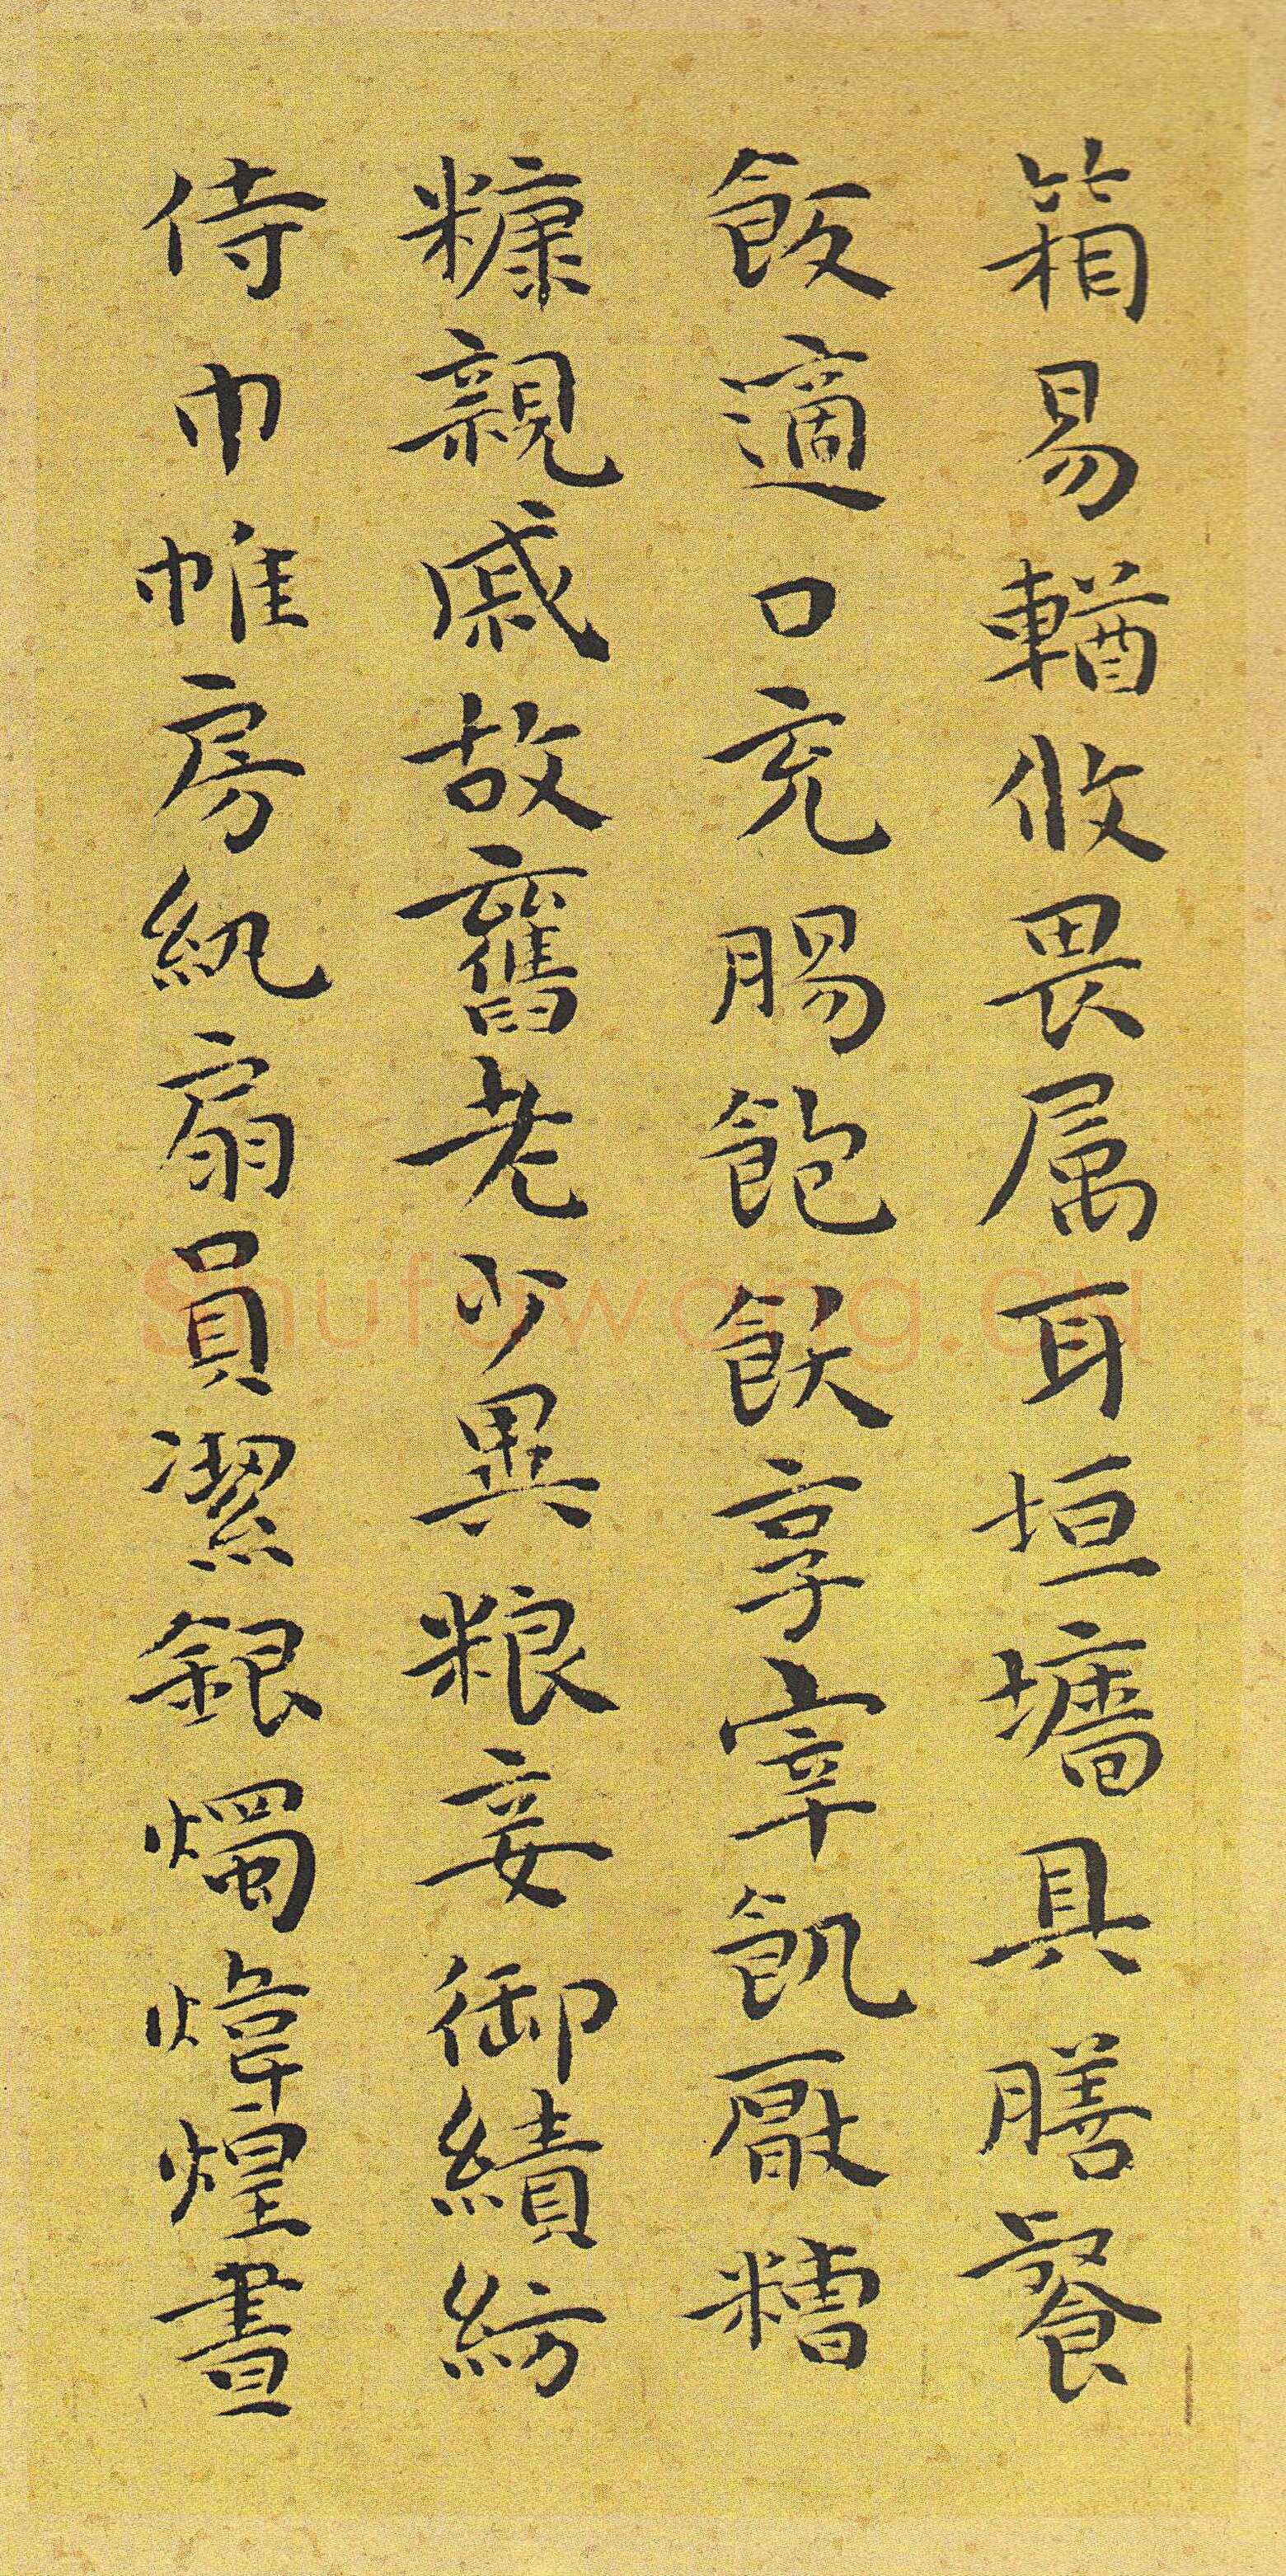 箱易輶攸畏属耳垣墻具膳飧
飯適口充腸飽飫享宰飢厭糟
糠親戚故舊老少異粮妾御績紡
侍巾帷房紈扇員潔銀燭煒煌晝
Shufawang.CN